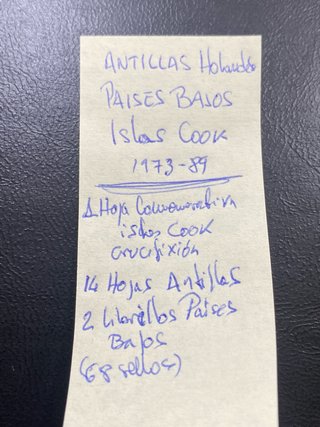 ANTILLAS Holandés
PAISES BAJOS
Islas Cook
1973-89
1 Hoja Conmemorativa
islas Cook
crucifixión
14 Hojas Antillas
2 librillos Paises
Bajos
(68 sellos)